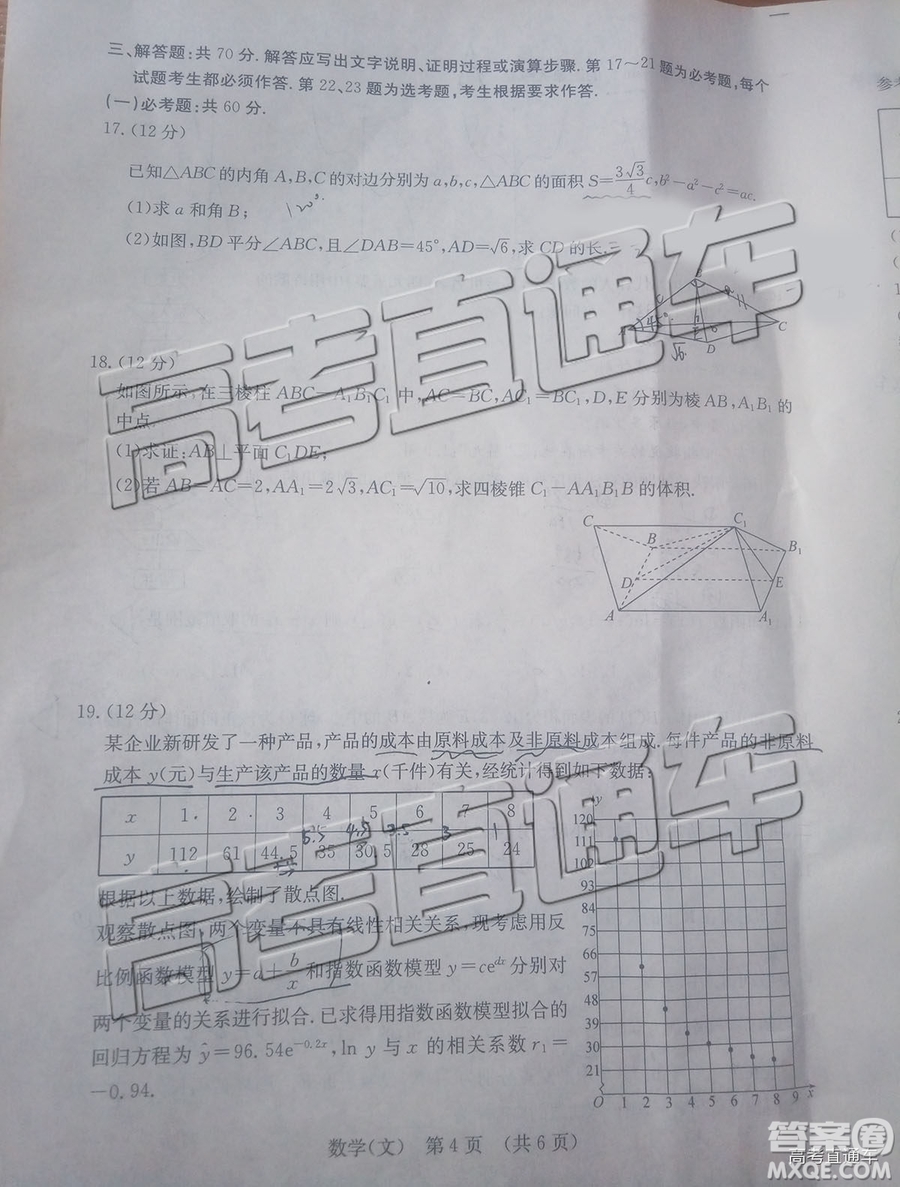 三、解答题:共 70 分. 解答应写出文字说明、证明过程或演算步骤. 第 17～21 题为必考题,每个
试题考生都必须作答. 第 22、23 题为选考题,考生根据要求作答.
(一)必考题:共 60 分.
17.(12 分)
已知△ABC 的内角 A,B,C 的对边分别为 a,b,c,△ABC 的面积 S=3√3/4 c,b²-a²-c²=ac.
(1)求 a 和角 B;
120°
(2)如图,BD 平分∠ABC,且∠DAB=45°,AD=√6,求 CD 的长.
45°
C
√6
D
18.(12 分)
如图所示,在三棱柱 ABC-A₁B₁C₁ 中,AC=BC,AC₁=BC₁,D,E 分别为棱 AB,A₁B₁ 的
中点.
(1)求证:AB⊥平面 C₁DE;
(2)若 AB=AC=2,AA₁=2√3,AC₁=√10,求四棱锥 C₁-AA₁B₁B 的体积.
C C₁
B B₁
D E
A A₁
19.(12 分)
某企业新研发了一种产品,产品的成本由原料成本及非原料成本组成. 每件产品的非原料
成本 y(元)与生产该产品的数量 x(千件)有关,经统计得到如下数据:
x 1 2 3 4 5 6 7 8
y 112 61 44.5 35 30.5 28 25 24
根据以上数据,绘制了散点图.
观察散点图,两个变量不具有线性相关关系,现考虑用反
比例函数模型 y=a+b/x 和指数函数模型 y=ce^{dx} 分别对
两个变量的关系进行拟合. 已求得用指数函数模型拟合的
回归方程为 ŷ=96.54e^{-0.2x},ln y 与 x 的相关系数 r₁=
-0.94.
y
120
111
102
93
84
75
66
57
48
39
30
21
O 1 2 3 4 5 6 7 8 9 x
数学(文) 第 4 页 (共 6 页)
高考直通车
高考直通车
答案圈
高考直通车
MXQE.COM
参考